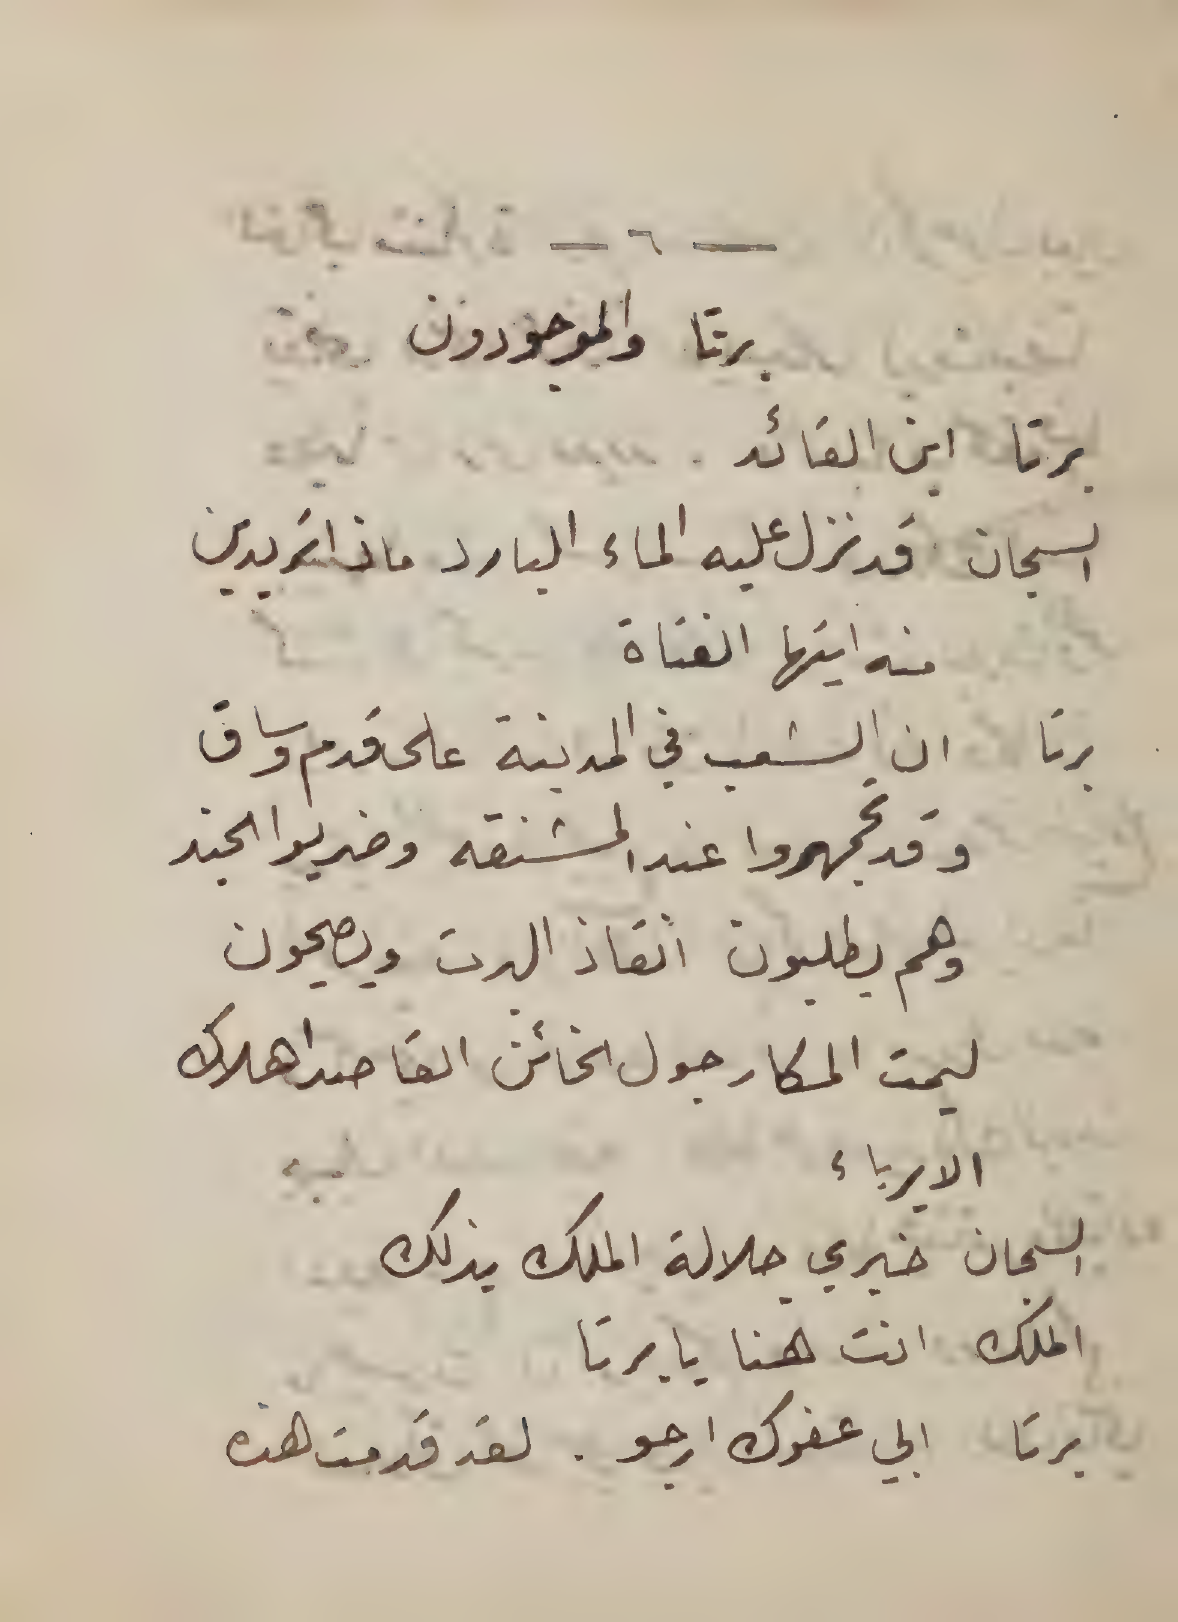 — ٦ —
برتا والموجودون
برتا اين القائد
السجان قد نزل عليه الماء البارد ماذا تريدين
منه ايتها الفتاة
برتا ان الشعب في المدينة على قدم وساق
وقد تجمهروا عند المشنقه وضربوا الجند
وهم يطلبون انقاذ البرت ويصيحون
ليمت المكار جول الخائن القاصد اهلاك
الابرياء
السجان خبري جلالة الملك بذلك
الملك انت هنا يا برتا
برتا ابي عفوك ارجو . لقد قدمت هذه